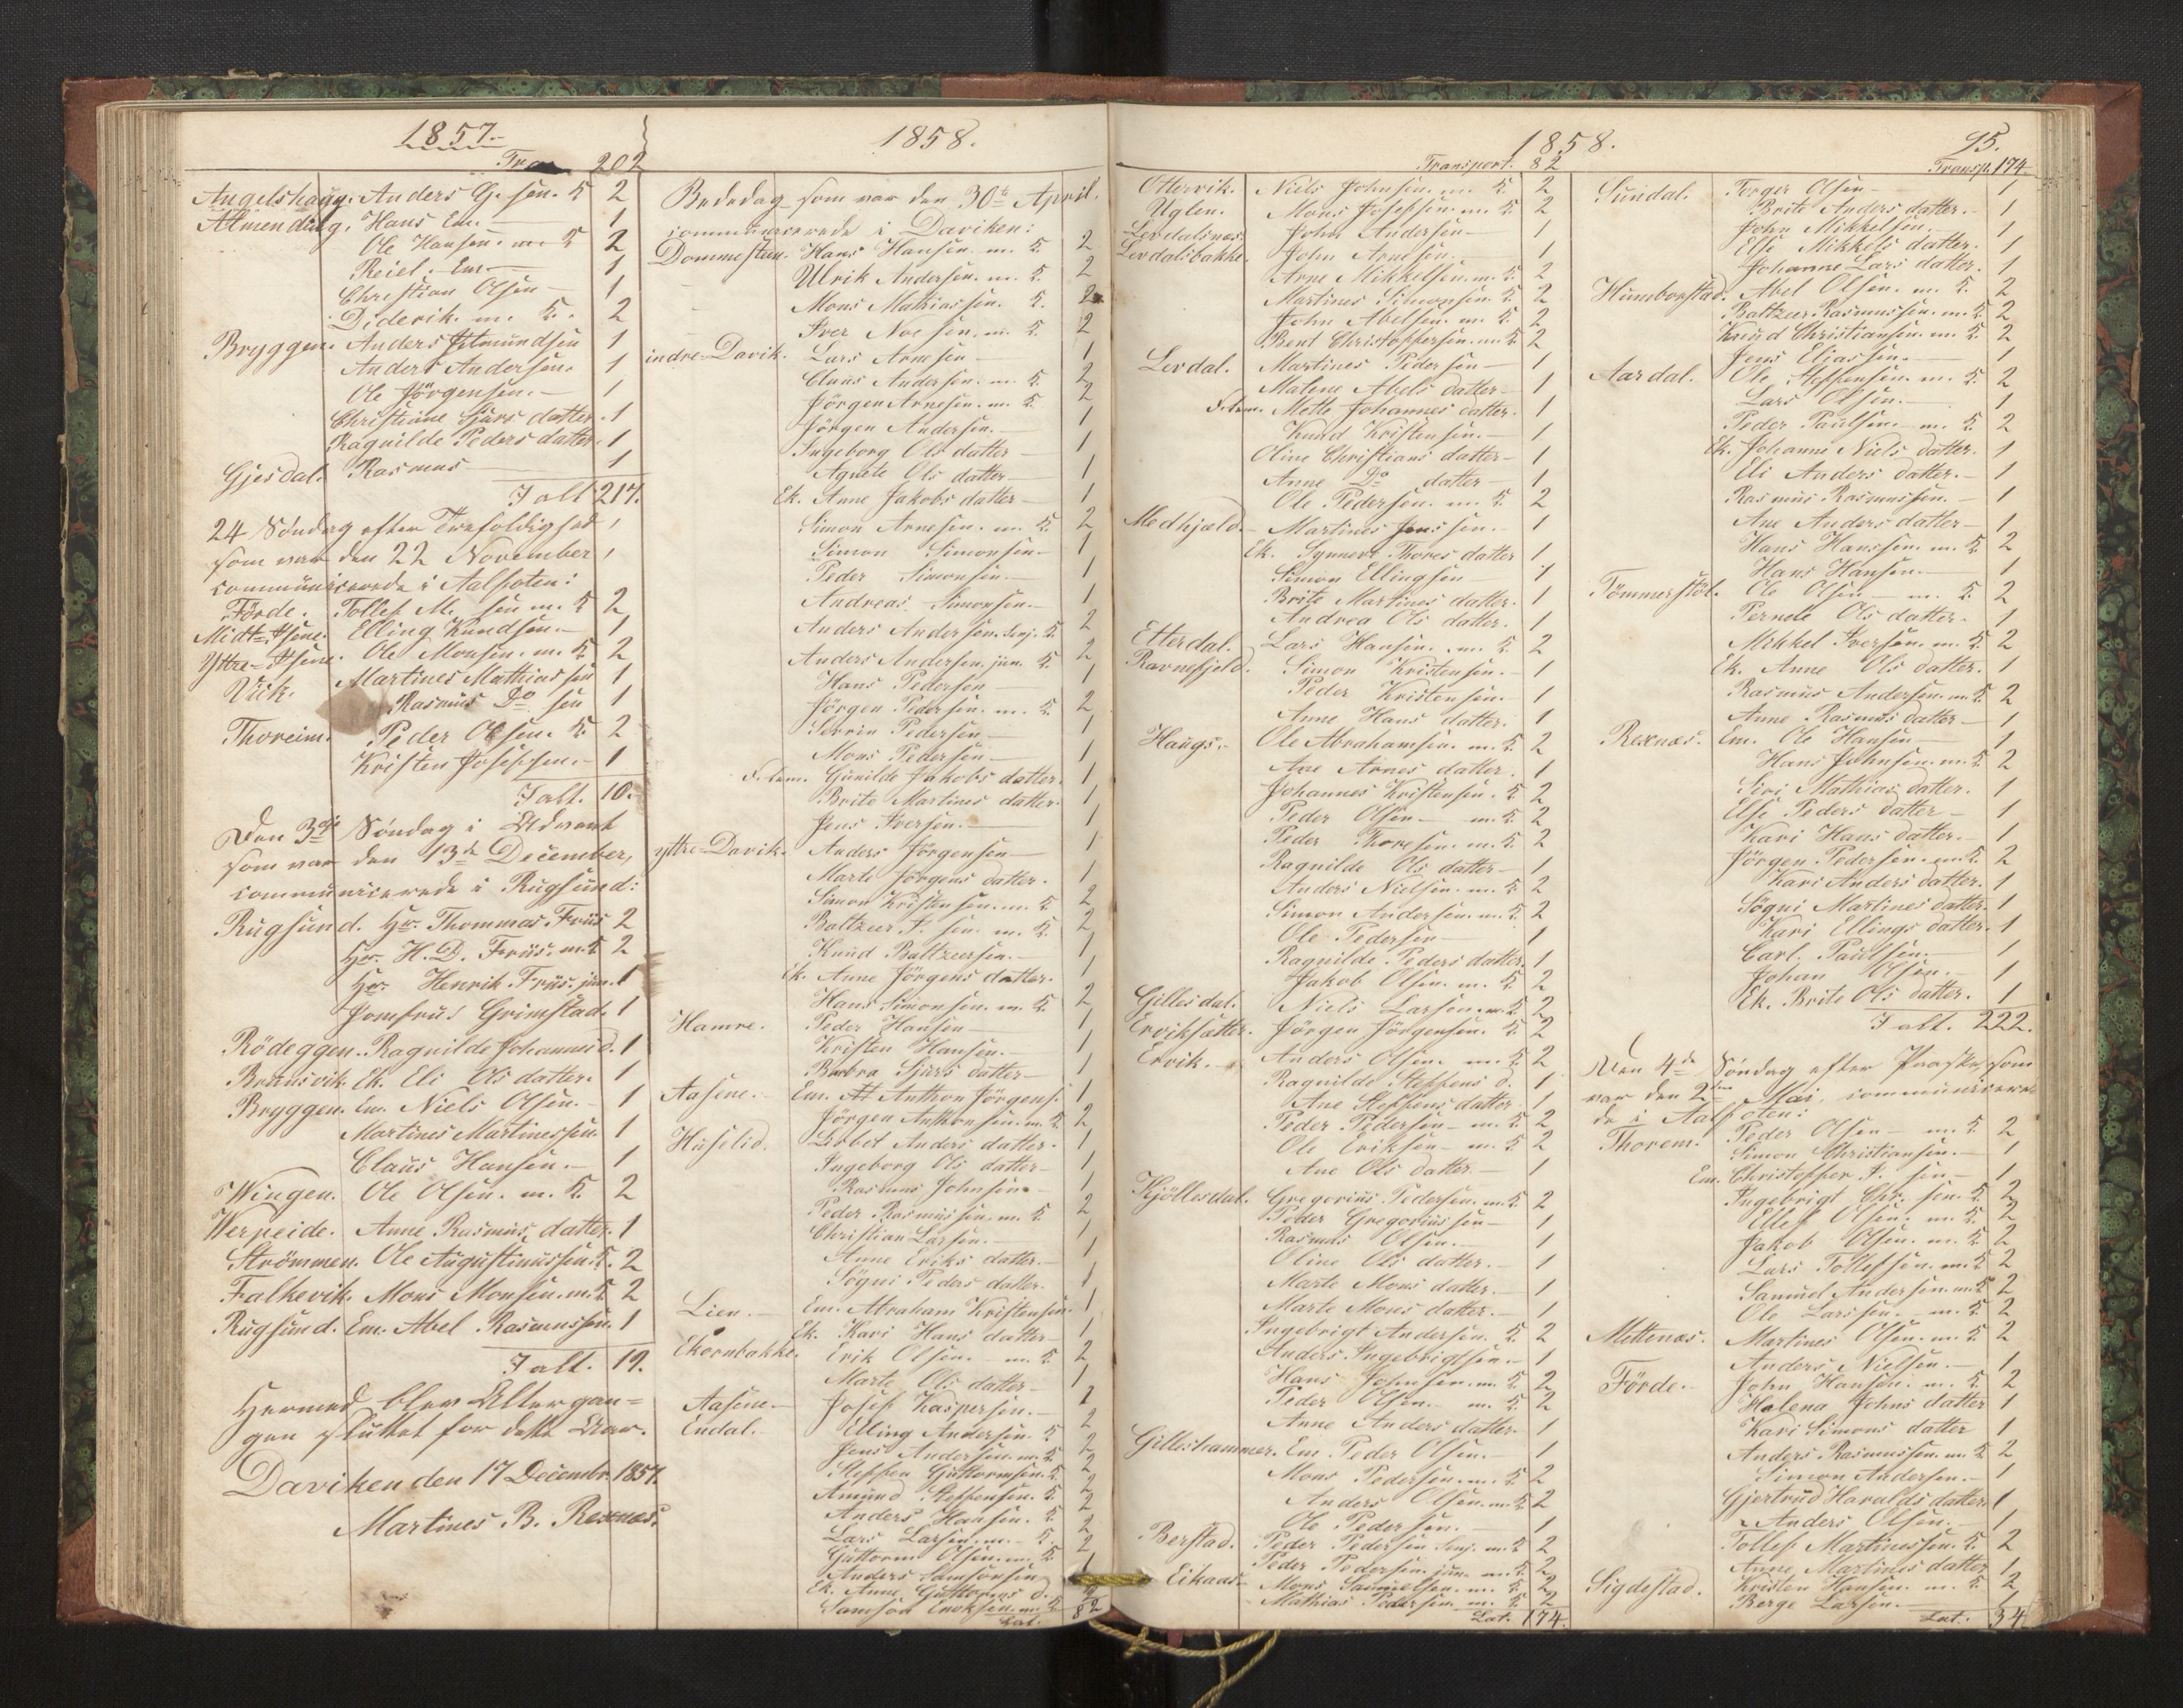 1857.
Tra 202
Angelshaug. Anders G. sen. K 2
Almending. Hans Em. 1
Ole Hansen. m. K 2
Reiel. Em. 1
Christian Olsen 1
Diderik. m. K. 2
Bryggen. Anders Amundsen 1
Anders Andersen. 1
Ole Jörgensen. 1
Christiane Sjurs datter. 1
Ragnilde Peders datter. 1
Gjesdal. Rasmus 1
I alt 217.
24 Söndag efter Trefoldighed
som var den 22 November
communicerede i Aalfoten:
Förde. Tollef M. sen m. K 2
Midt-Åsene. Elling Knudsen. 1
Yttre-Åsene. Ole Monsen. m. K 2
Vik. Martines Mathiassen 1
Rasmus Do sen 1
Thoreim. Peder Olsen. K 2
Kristen Josefsen. 1
I alt. 10.
Den 3die Söndag i Advent
som var den 13de December,
communicerede i Rugsund:
Rugsund. Hr. Thommas Friis 2
Hr. H. D. Friis. m. K 2
Hr. Henrik Friis. jun. 1
Jomfru Grimstad. 1
Rödeggen. Ragnilde Johannes d. 1
Brunsvik. Ek. Eli Ols datter. 1
Bryggen. Em. Niels Olsen. 1
Martines Martinessen. 1
Claus Hansen. 1
Wingen. Ole Olsen. m. K. 2
Werpeide. Anne Rasmus datter. 1
Strömmen. Ole Augustinussen. K. 2
Falkevik. Mons Monsen. m. K 2
Rugsund. Em. Abel Rasmussen. 1
I alt. 19.
Hermed blev Altergan=
gen sluttet for dette Aar.
Daviken den 17 Decembr. 1857.
Martines B. Rexnæs.
1858.
Bededag som var den 30te April.
communicerede i Daviken:
Dommesten. Hans Hansen. m. K. 2
Ulrik Andersen. m. K. 2
Mons Mathiassen. K. 2
Iver Noesen. m. K 2
indre-Davik. Lars Arnesen 1
Claus Andersen. m. K. 2
Jörgen Arnesen. m. K. 2
Jörgen Andersen. 1
Ingeborg Ols datter 1
Agnete Ols datter 1
Ek. Anne Jakobs datter 1
Simon Arnesen. m. K. 2
Simon Simonsen 1
Peder Simonsen. 1
Andreas Simonsen. 1
Anders Andersen. Senj. K. 2
Anders Andersen. jun. K. 2
Hans Pedersen 1
Jörgen Pedersen. m. K. 2
Serrin Pedersen 1
Mons Pedersen 1
F. tem. Gunilde Jakobs datter. 1
Brite Martines datter. 1
Jens Iversen. 1
yttre-Davik. Anders Jörgensen 1
Marte Jörgens datter. 1
Simon Kristensen. m. K 2
Baltzer A. sen. m. K. 2
Knud Baltzersen. 1
Ek. Anne Jörgens datter. 1
Hans Simonsen. m. K. 2
Hamre. Peder Hansen 1
Kristen Hansen. 1
Barbra Sjurs datter 1
Aasene. Em. Anthon Jörgens. 1
Jörgen Anthonsen. m. K 2
Huselid. Lisbet Anders datter. 1
Ingeborg Ols datter 1
Rasmus Johnsen 1
Peder Rasmussen. m. K. 2
Christian Larsen. 1
Anne Eriks datter. 1
Sögni Peders datter. 1
Lien. Em. Abraham Kristensen. 1
Ek. Kari Hans datter 1
Ekornbakke. Erik Olsen. m. K. 2
Marte Ols datter 1
Aasene. Josef Kaspersen. 1
Endal. Elling Andersen. K 2
Jens Andersen. m. K 2
Steffen Guttormsen. K. 2
Amund Steffensen. K. 2
Anders Hansen. K 2
Lars Larsen. m. K. 2
Guttorm Olsen. m. K. 2
Anders Samsonsen 1
Ek. Anne Guttorms d. 1
Samson Enoksen. m. K 2
Lat. 82
1858. 95.
Transport. 82
Ottervik. Niels Johnsen. m. K. 2
Uglen. Mons Josefsen. m. K 2
Levdalsnæs. John Andersen 1
Levdalsbakke. John Arnesen. 1
Arne Mikkelsen. m. K 2
Martines Simonsen. K. 2
John Abelsen. m. K. 2
Bent Christoffersen. m. K 2
Levdal. Martines Pedersen 1
Malene Abels datter 1
F. tem. Mette Johannes datter. 1
Knud Kristensen. 1
Oline Christians datter 1
Anne Do datter 1
Ole Pedersen. m. K. 2
Medhjæld. Martines Jenssen. 1
Ek. Synneve Thores datter 1
Simon Ellingsen 1
Brite Martines datter. 1
Andrea Ols datter. 1
Etterdal. Lars Hansen. m. K 2
Ravnefjeld. Simon Kristensen. 1
Peder Kristensen. 1
Anne Hans datter. 1
Haugs. Ole Abrahamsen. m. K. 2
Ane Arnes datter. 1
Johannes Kristensen. K 2
Peder Olsen m. K 2
Peder Thoresen. m. K. 2
Ragnilde Ols datter 1
Anders Nielsen. m. K. 2
Simon Andersen. m. K. 2
Ole Pedersen 1
Ragnilde Peders datter. 1
Jakob Olsen. m. K. 2
Gillesdal. Niels Larsen. m. K 2
Erviksætter. Jörgen Jörgensen. K 2
Ervik. Anders Olsen. m. K. 2
Ragnilde Steffens d. 1
Ane Steffens datter. 1
Peder Pedersen m. K 2
Ole Eriksen m. K 2
Ane Ols datter. 1
Kjöllesdal. Gregorius Pedersen. m. K 2
Peder Gregoriussen 1
Rasmus Olsen. 1
Oline Ols datter. 1
Marte Mons datter. 1
Marte Mons datter. 1
Ingebrigt Andersen. K. 2
Anders Ingebrigtsen. 1
Hans Johnsen. m. K 2
Peder Olsen. m. K 2
Anne Anders datter. 1
Gilleshammer. Em. Peder Olsen. 1
Mons Pedersen. m. K. 2
Anders Olsen. m. K 2
Ole Pedersen. 1
Berstad. Peder Pedersen Senj. m. K 2
Peder Pedersen. jun. m. K 2
Eikaas. Mons Samuelsen. m. K 2
Mathias Pedersen. m. K 2
Lat. 174
Transp. 174
Sundal. Torger Olsen 1
Brite Anders datter. 1
John Mikkelsen. 1
Else Mikkels datter. 1
Johanne Lars datter. 1
Humborstad. Abel Olsen. m. K. 2
Baltzer Rasmussen. m. K 2
Knud Christiansen. m. K 2
Jens Eliassen. 1
Aardal. Ole Steffensen. m. K. 2
Lars Olsen. 1
Peder Paulsen. m. K 2
Ek. Johanne Niels datter. 1
Eli Anders datter. 1
Rasmus Rasmussen. 1
Ane Anders datter 1
Hans Hanssen. m. K 2
Hans Hansen. 1
Tömmerstöl. Ole Olsen m. K. 2
Pernele Ols datter. 1
Mikkel Iversen. m. K 2
Ek. Anne Ols datter. 1
Rasmus Andersen. m. K 2
Anne Rasmus datter 1
Rexnæs. Em. Ole Hansen 1
Hans Johnsen. m. K 2
Siri Mathias datter. 1
Else Peders datter 1
Kari Hans datter. 1
Jörgen Pedersen. m. K. 2
Kari Anders datter. 1
Sögni Martines datter. 1
Kari Ellings datter. 1
Carl. Paulsen. 1
Johan Olsen. 1
Ek. Brite Ols datter. 1
I alt. 222.
Den 4de Söndag efter Paaske, som
var den 2den Mai, communicere=
de i Aalfoten:
Thorem. Peder Olsen m. K. 2
Simon Christiansen. 1
Em. Christoffer F. sen 1
Ingebrigt Chr. sen. K. 2
Ellef Olsen. m. K 2
Jakob Olsen. m. K 2
Lars Tollefsen. m. K 2
Samuel Andersen. m. K 2
Ole Larssen. m. K 2
Mettenæs. Martines Olsen. m. K 2
Anders Nielsen. 1
Förde. John Hansen. m. K 2
Helena Johns datter 1
Kari Simons datter 1
Anders Rasmussen. m. K 2
Simon Andersen. 1
Gjertrud Haralds datter. 1
Anders Olsen. 1
Tollef Martinessen. K. 2
Anne Martines datter 1
Sigdestad. Kristen Hansen. m. K. 2
Berge Larsen. 1
Lat. 34